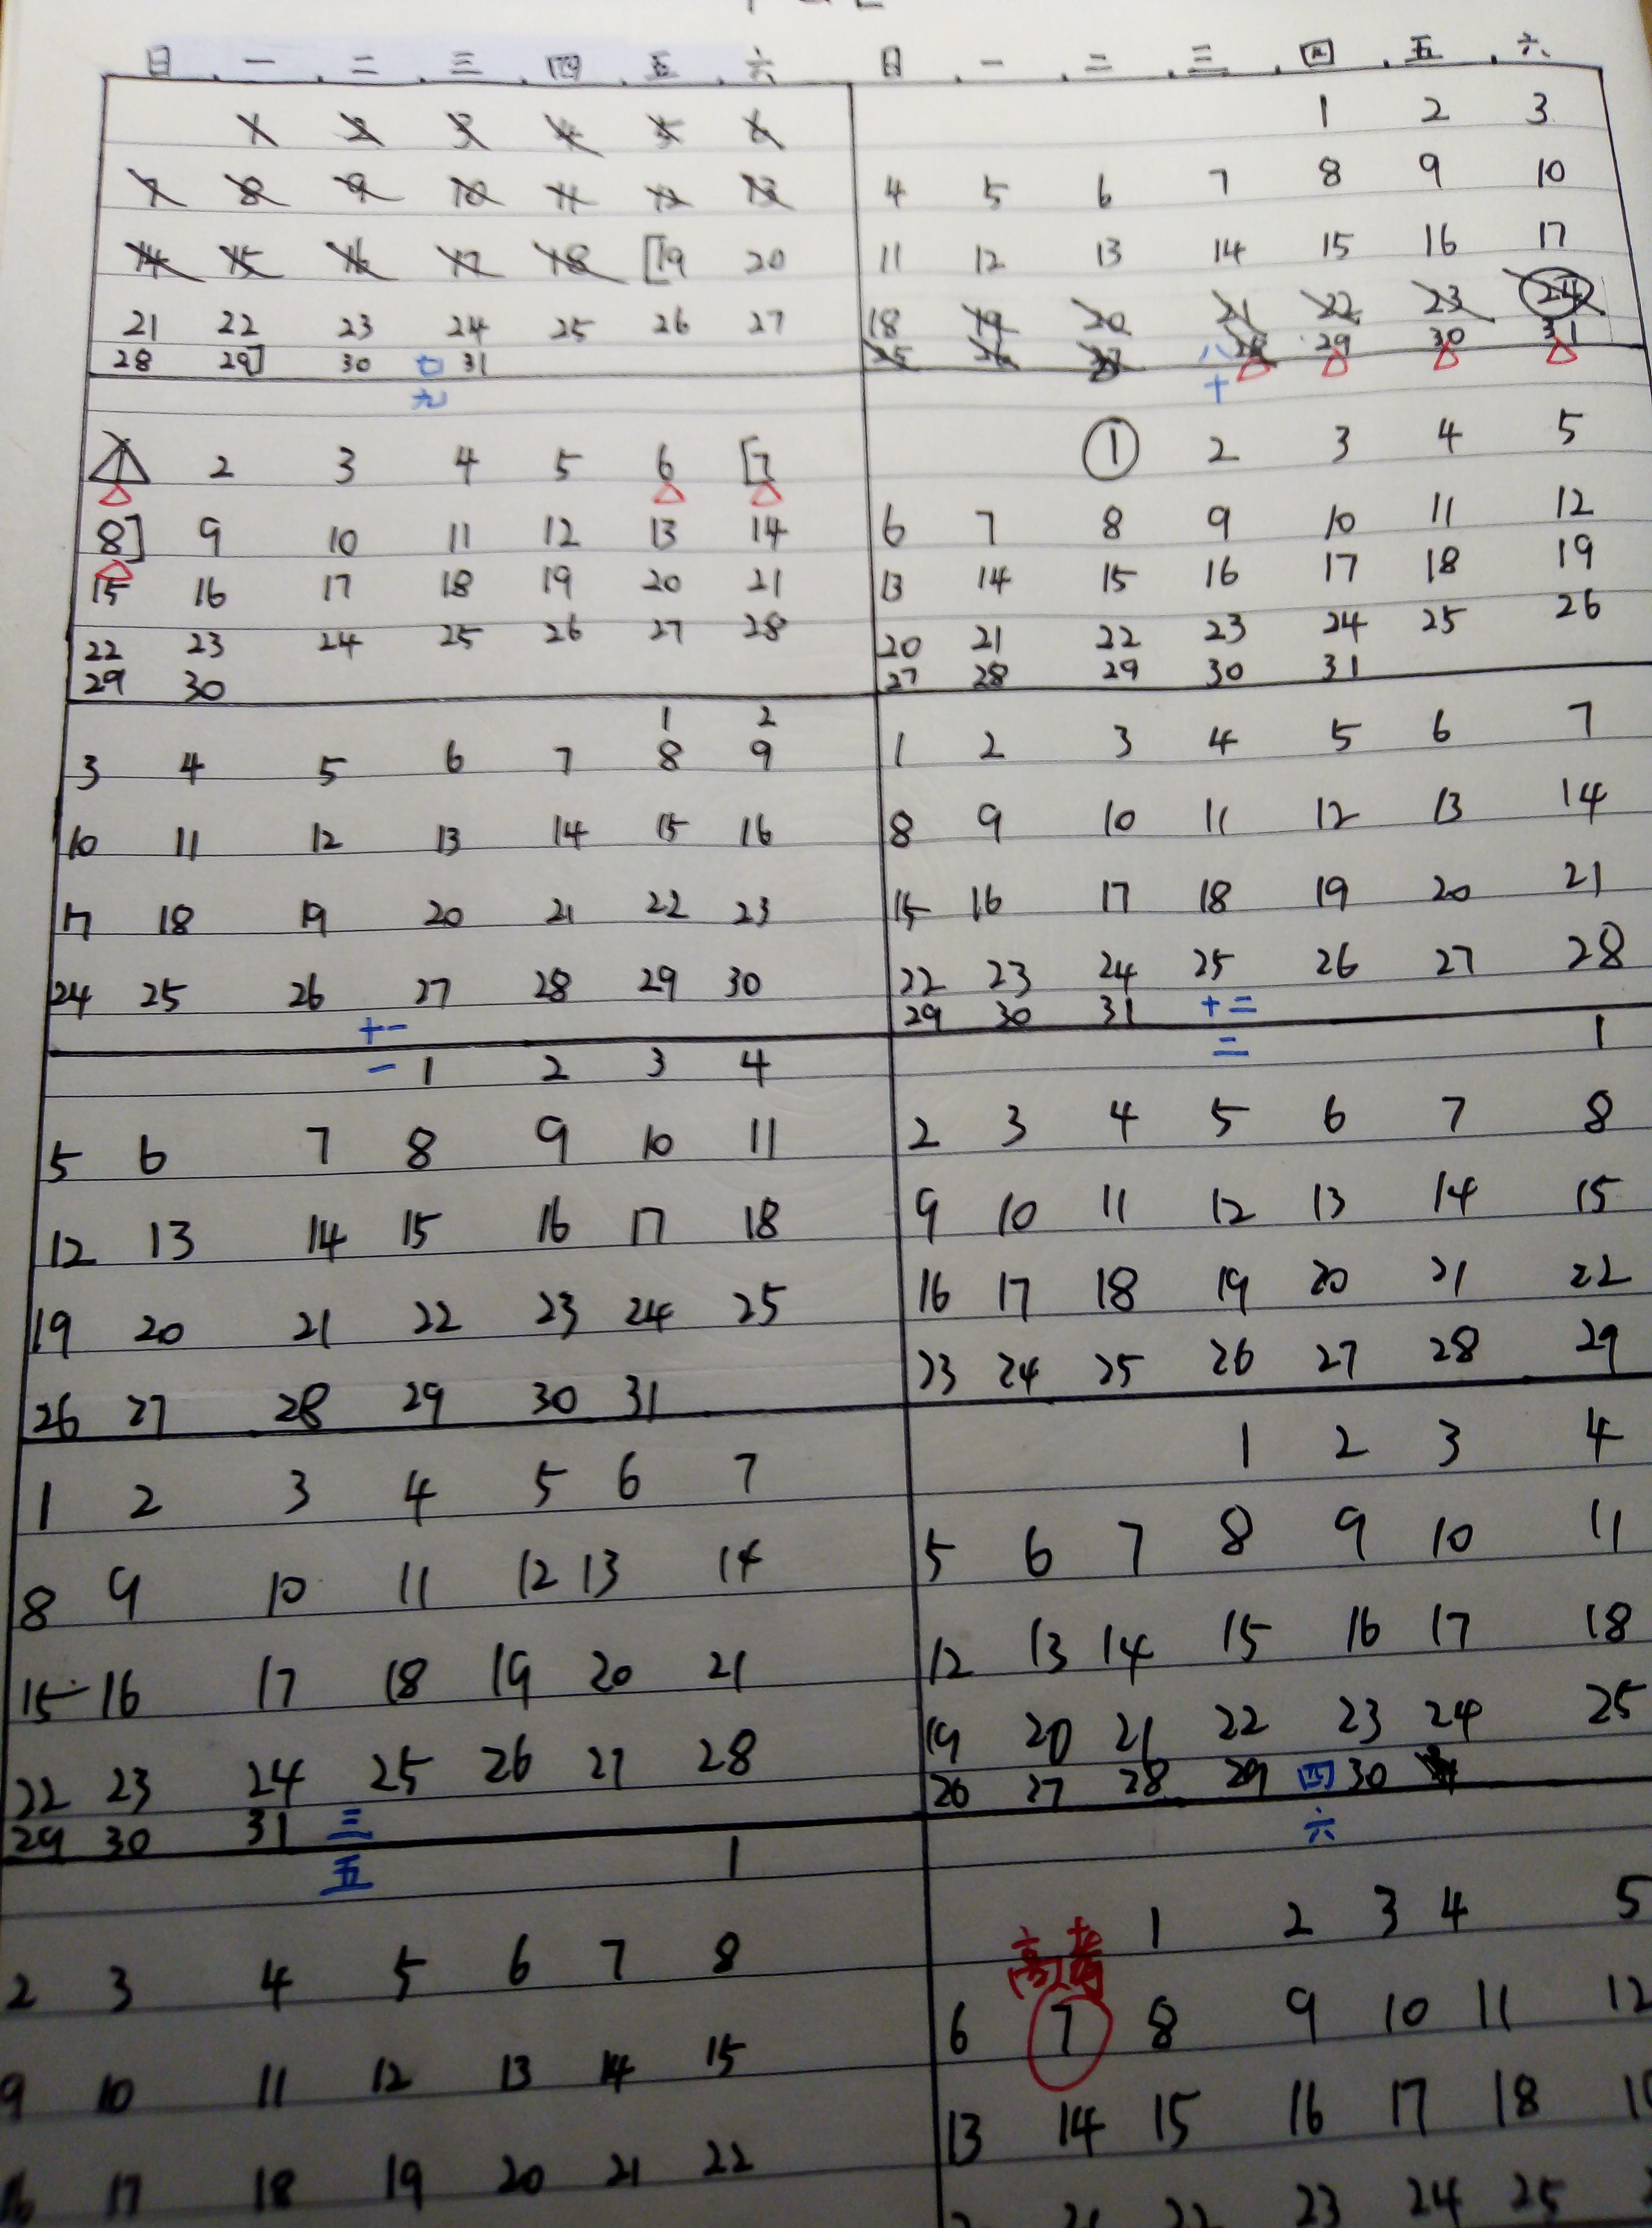 日 一 二 三 四 五 六
1 2 3 4 5 6
7 8 9 10 11 12 13
14 15 16 17 18 [19 20
21 22 23 24 25 26 27
28 29] 30 七 31
日 一 二 三 四 五 六
1 2 3
4 5 6 7 8 9 10
11 12 13 14 15 16 17
18 19 20 21 22 23 24
25 26 27 八 28 29 30 31
九
1 2 3 4 5 6 [7
8] 9 10 11 12 13 14
15 16 17 18 19 20 21
22 23 24 25 26 27 28
29 30
十
1 2 3 4 5
6 7 8 9 10 11 12
13 14 15 16 17 18 19
20 21 22 23 24 25 26
27 28 29 30 31
1 2
3 4 5 6 7 8 9
10 11 12 13 14 15 16
17 18 19 20 21 22 23
24 25 26 27 28 29 30
十一
1 2 3 4 5 6 7
8 9 10 11 12 13 14
15 16 17 18 19 20 21
22 23 24 25 26 27 28
29 30 31 十二
一 1 2 3 4
5 6 7 8 9 10 11
12 13 14 15 16 17 18
19 20 21 22 23 24 25
26 27 28 29 30 31
二 1
2 3 4 5 6 7 8
9 10 11 12 13 14 15
16 17 18 19 20 21 22
23 24 25 26 27 28 29
1 2 3 4 5 6 7
8 9 10 11 12 13 14
15 16 17 18 19 20 21
22 23 24 25 26 27 28
29 30 31 三
1 2 3 4
5 6 7 8 9 10 11
12 13 14 15 16 17 18
19 20 21 22 23 24 25
26 27 28 29 四 30
五 1
2 3 4 5 6 7 8
9 10 11 12 13 14 15
16 17 18 19 20 21 22
六
1 2 3 4 5
高考
6 7 8 9 10 11 12
13 14 15 16 17 18
21 22 23 24 25